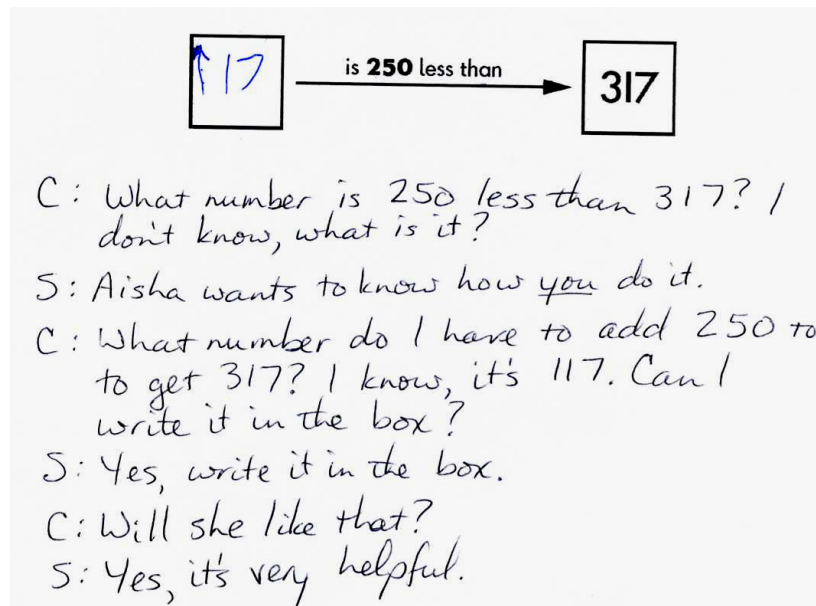 117 is 250 less than 317
C: What number is 250 less than 317? I
don't know, what is it?
S: Aisha wants to know how you do it.
C: What number do I have to add 250 to
to get 317? I know, it's 117. Can I
write it in the box?
S: Yes, write it in the box.
C: Will she like that?
S: Yes, it's very helpful.